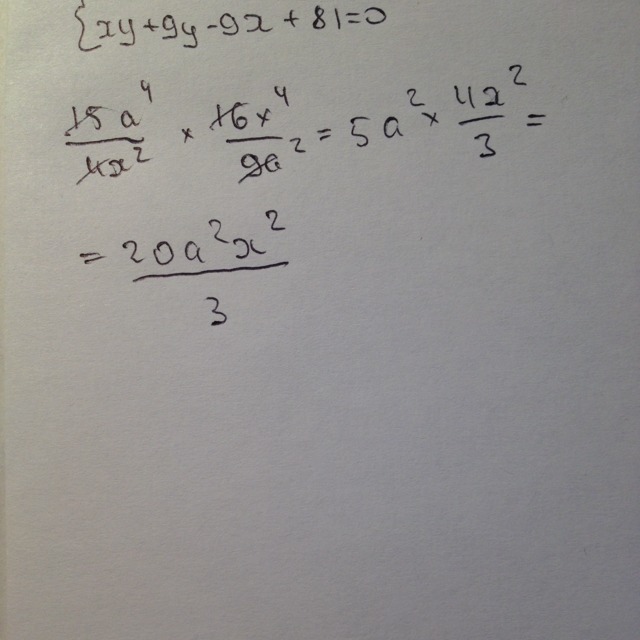 {xy+9y-9x+81=0
15a⁴/4x² × 16x⁴/9a² = 5a² × 4x²/3 =
= 20a²x²/3